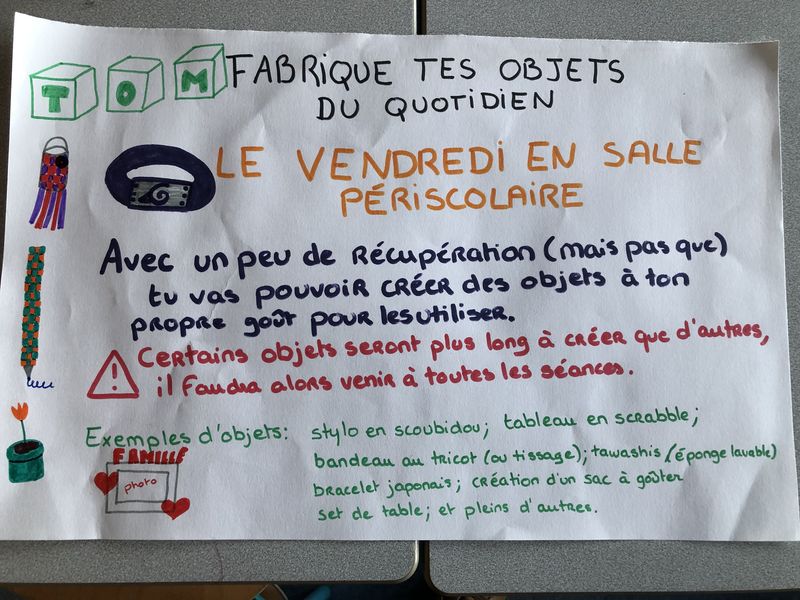 TOM FABRIQUE TES OBJETS
DU QUOTIDIEN
LE VENDREDI EN SALLE
PÉRISCOLAIRE
Avec un peu de RÉCUPÉRATION (mais pas que)
tu vas pouvoir créer des objets à ton
propre goût pour les utiliser.
Certains objets seront plus long à créer que d'autres,
il faudra alors venir à toutes les séances.
Exemples d'objets: stylo en scoubidou; tableau en scrabble;
bandeau au tricot (ou tissage); tawashis (éponge lavable)
bracelet japonais; création d'un sac à goûter
set de table; et pleins d'autres.
FAMILLE
photo